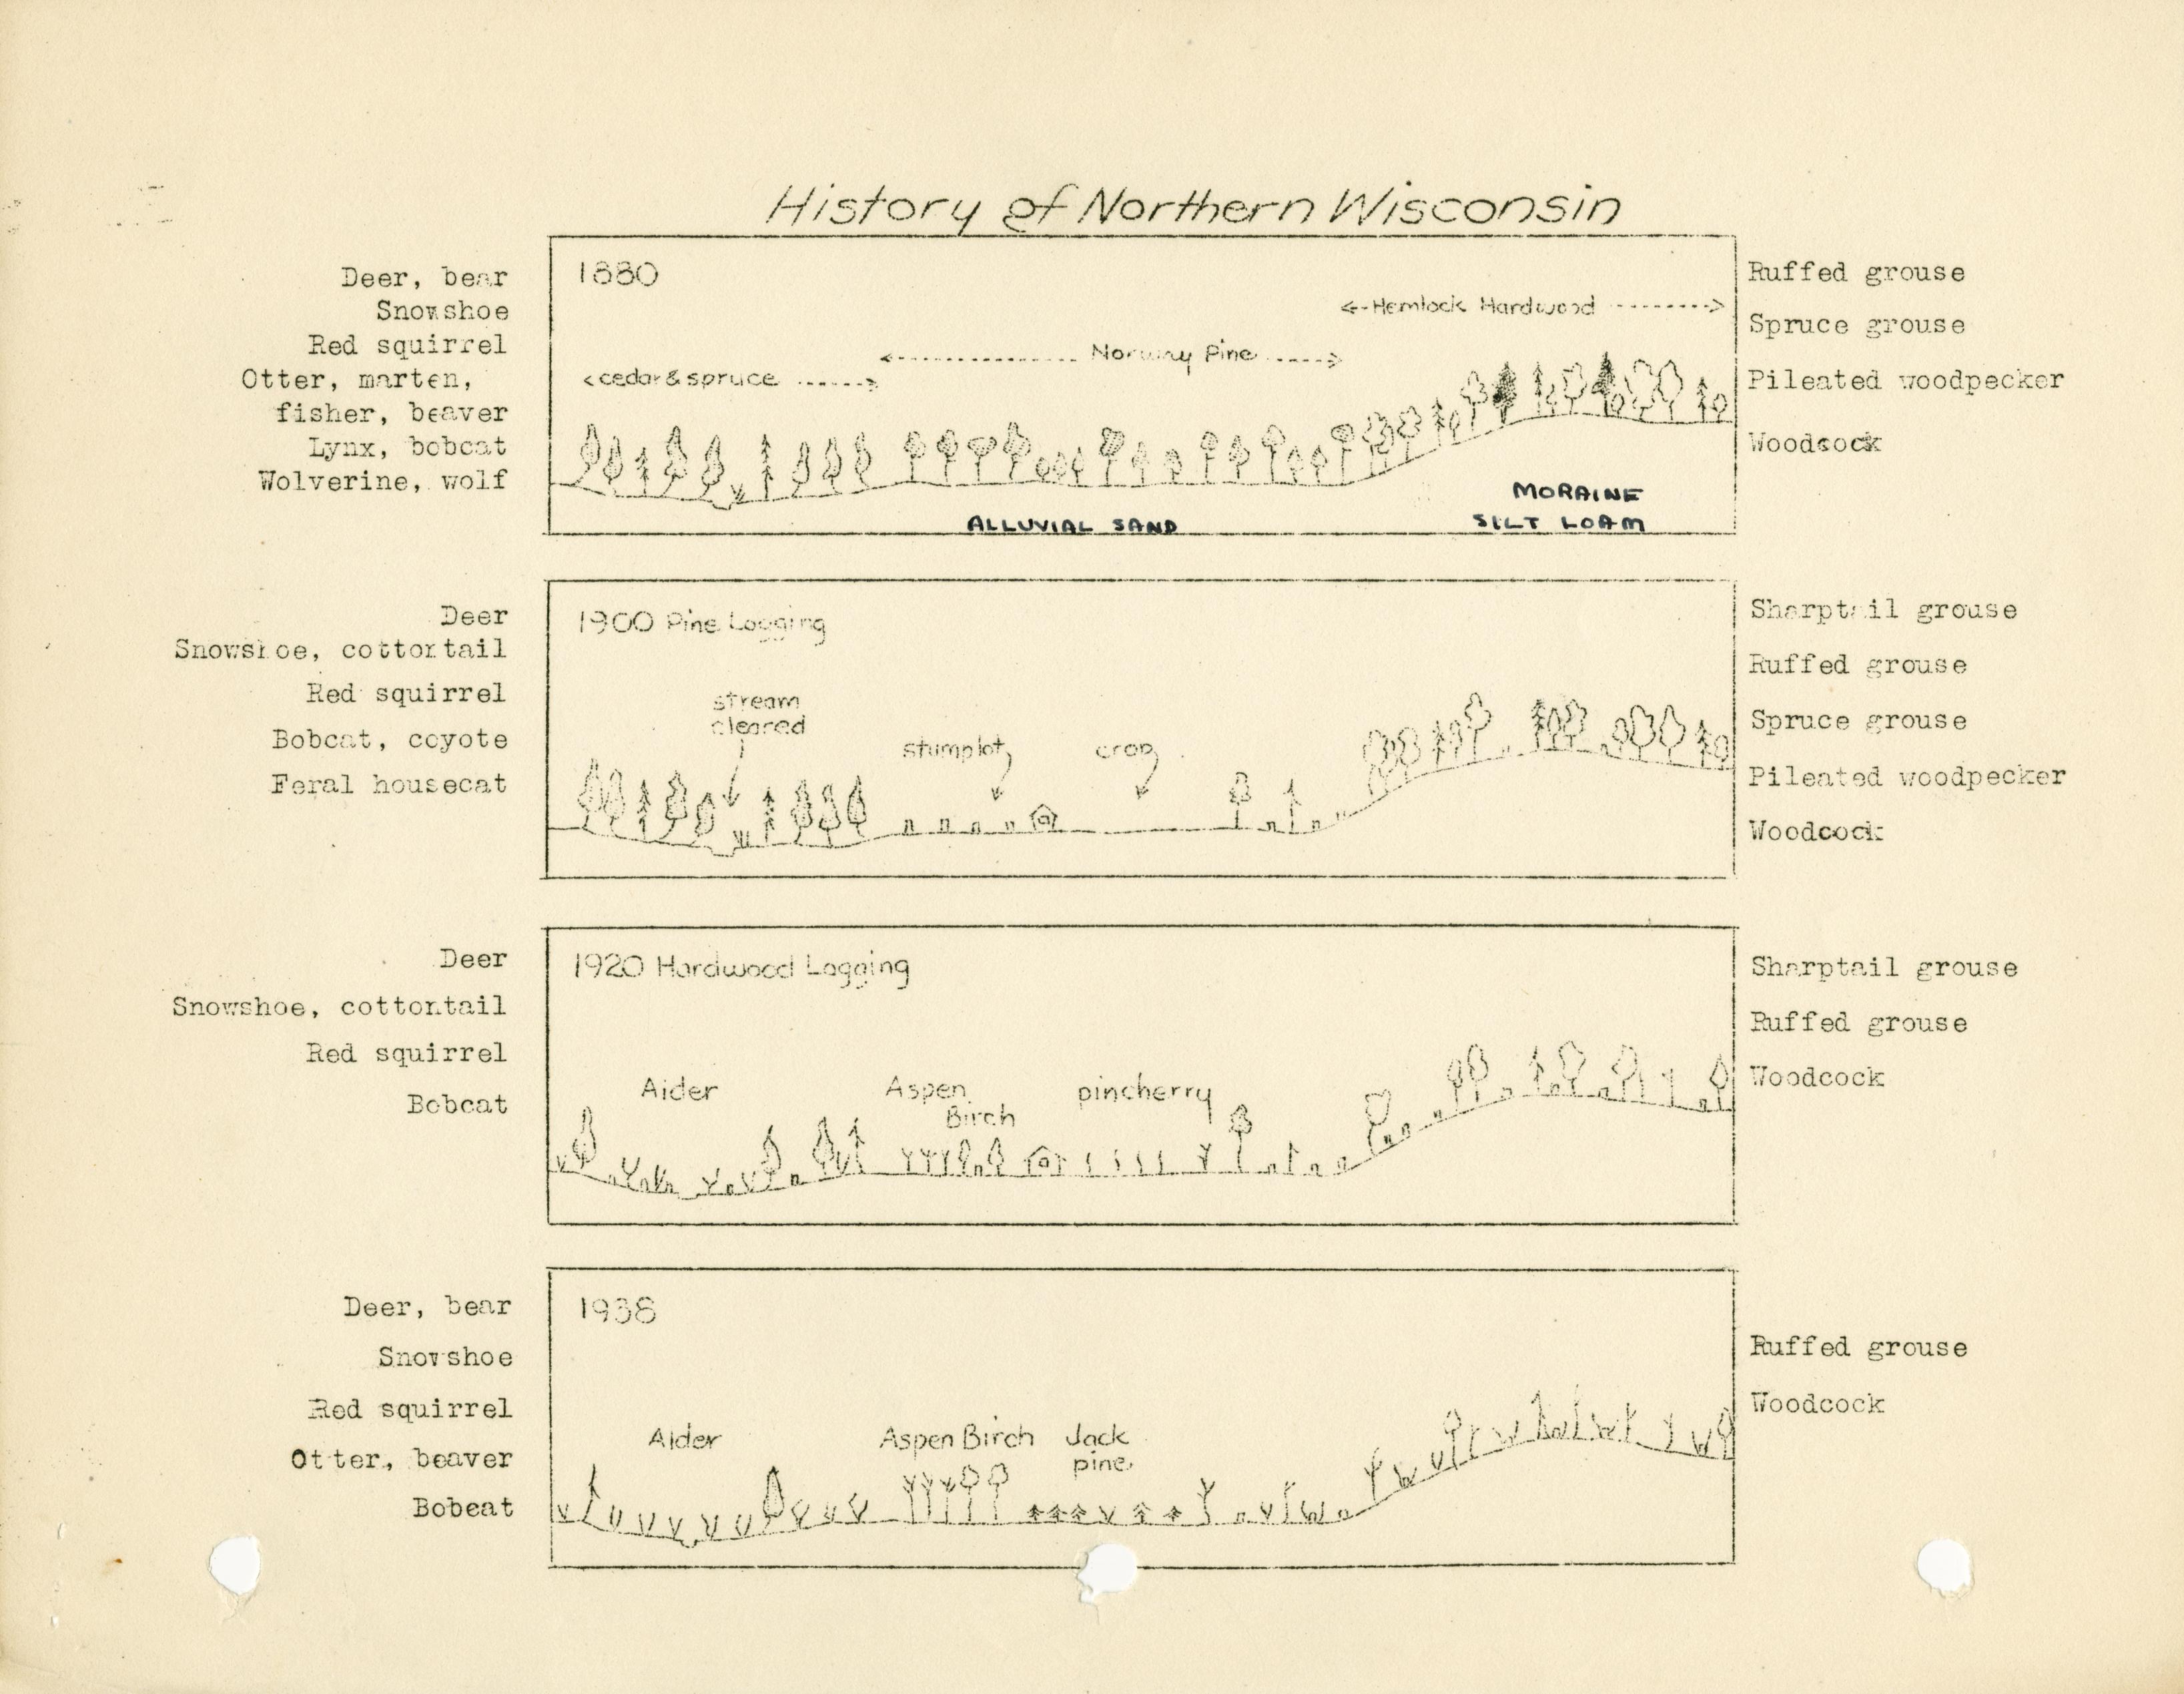 History of Northern Wisconsin
Deer, bear
Snowshoe
Red squirrel
Otter, marten,
fisher, beaver
Lynx, bobcat
Wolverine, wolf
1880
<- Hemlock Hardwood ------->
<------------- Norway Pine ------>
<cedar & spruce ------>
MORAINE
ALLUVIAL SAND
SILT LOAM
Ruffed grouse
Spruce grouse
Pileated woodpecker
Woodcock
Deer
Snowshoe, cottontail
Red squirrel
Bobcat, coyote
Feral housecat
1900 Pine Logging
stream
cleared
stumplot
crop
Sharptail grouse
Ruffed grouse
Spruce grouse
Pileated woodpecker
Woodcock
Deer
Snowshoe, cottontail
Red squirrel
Bobcat
1920 Hardwood Logging
Alder
Aspen
Birch
pincherry
Sharptail grouse
Ruffed grouse
Woodcock
Deer, bear
Snowshoe
Red squirrel
Otter, beaver
Bobcat
1938
Alder
Aspen Birch
Jack
pine
Ruffed grouse
Woodcock